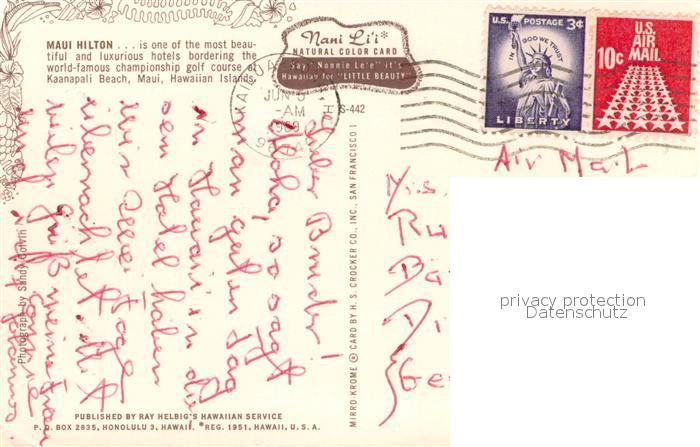 MAUI HILTON . . . is one of the most beau-
tiful and luxurious hotels bordering the
world-famous championship golf course at
Kaanapali Beach, Maui, Hawaiian Islands.
Nani Li'i*
NATURAL COLOR CARD
Say "Nonnie Le'e" it's
Hawaiian for "LITTLE BEAUTY"
JUN 5
-AM
1969
S-442
U.S. POSTAGE 3¢
IN GOD WE TRUST
LIBERTY
U.S.
AIR
MAIL
10¢
Air Mail
Lieber Bruder!
Aloha, so sagt
man guten Tag
in Hawaii. In die
sem Hotel haben
wir Tage
übernachtet. Mit
viele Grüße
privacy protection
Datenschutz
Photograph by Sandy Colvin
MIRRO-KROME ® CARD BY H. S. CROCKER CO., INC., SAN FRANCISCO 1
PUBLISHED BY RAY HELBIG'S HAWAIIAN SERVICE
P. O. BOX 2835, HONOLULU 3, HAWAII. *REG. 1951, HAWAII, U. S. A.